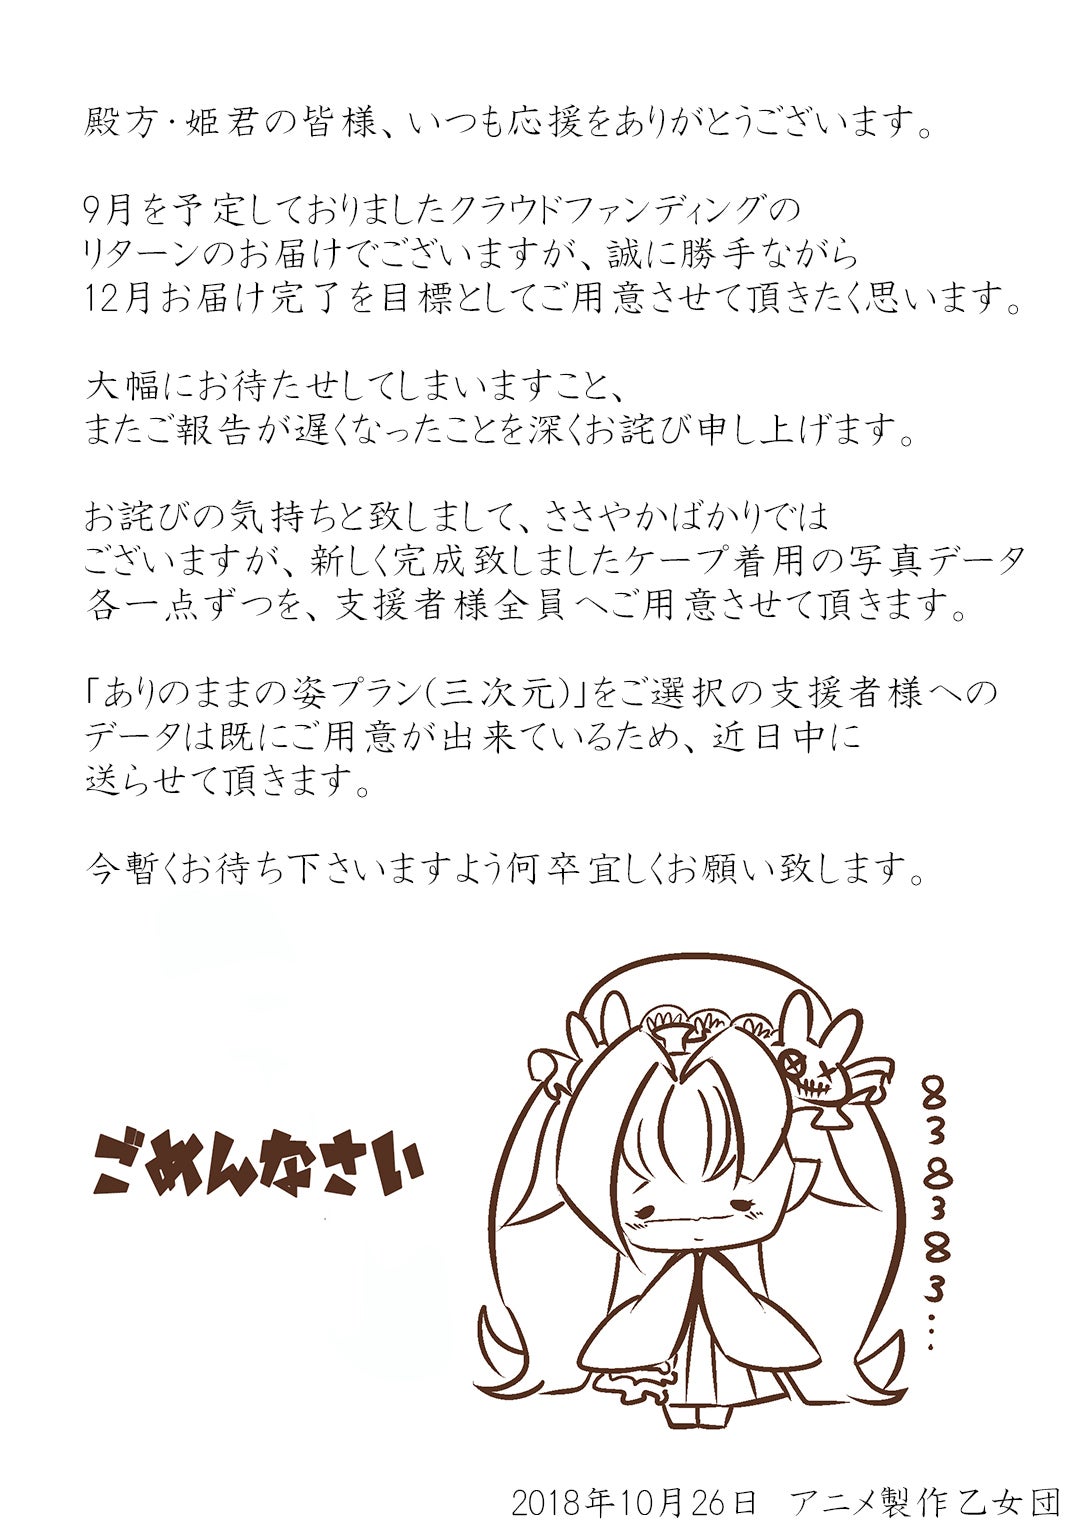 殿方・姫君の皆様、いつも応援をありがとうございます。
9月を予定しておりましたクラウドファンディングの
リターンのお届けでございますが、誠に勝手ながら
12月お届け完了を目標としてご用意させて頂きたく思います。
大幅にお待たせしてしまいますこと、
またご報告が遅くなったことを深くお詫び申し上げます。
お詫びの気持ちと致しまして、ささやかばかりでは
ございますが、新しく完成致しましたケープ着用の写真データ
各一点ずつを、支援者様全員へご用意させて頂きます。
「ありのままの姿プラン(三次元)」をご選択の支援者様への
データは既にご用意が出来ているため、近日中に
送らせて頂きます。
今暫くお待ち下さいますよう何卒宜しくお願い致します。
ごめんなさい
838383…
2018年10月26日 アニメ製作乙女団